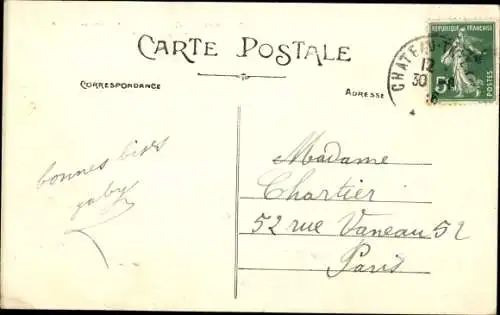 CARTE POSTALE
CORRESPONDANCE
ADRESSE
RÉPUBLIQUE FRANÇAISE
5c
POSTES
CHÂTEAU-
12
30 -8
bonnes bises
gaby
Madame
Chartier
52 rue Vaneau 52
Paris